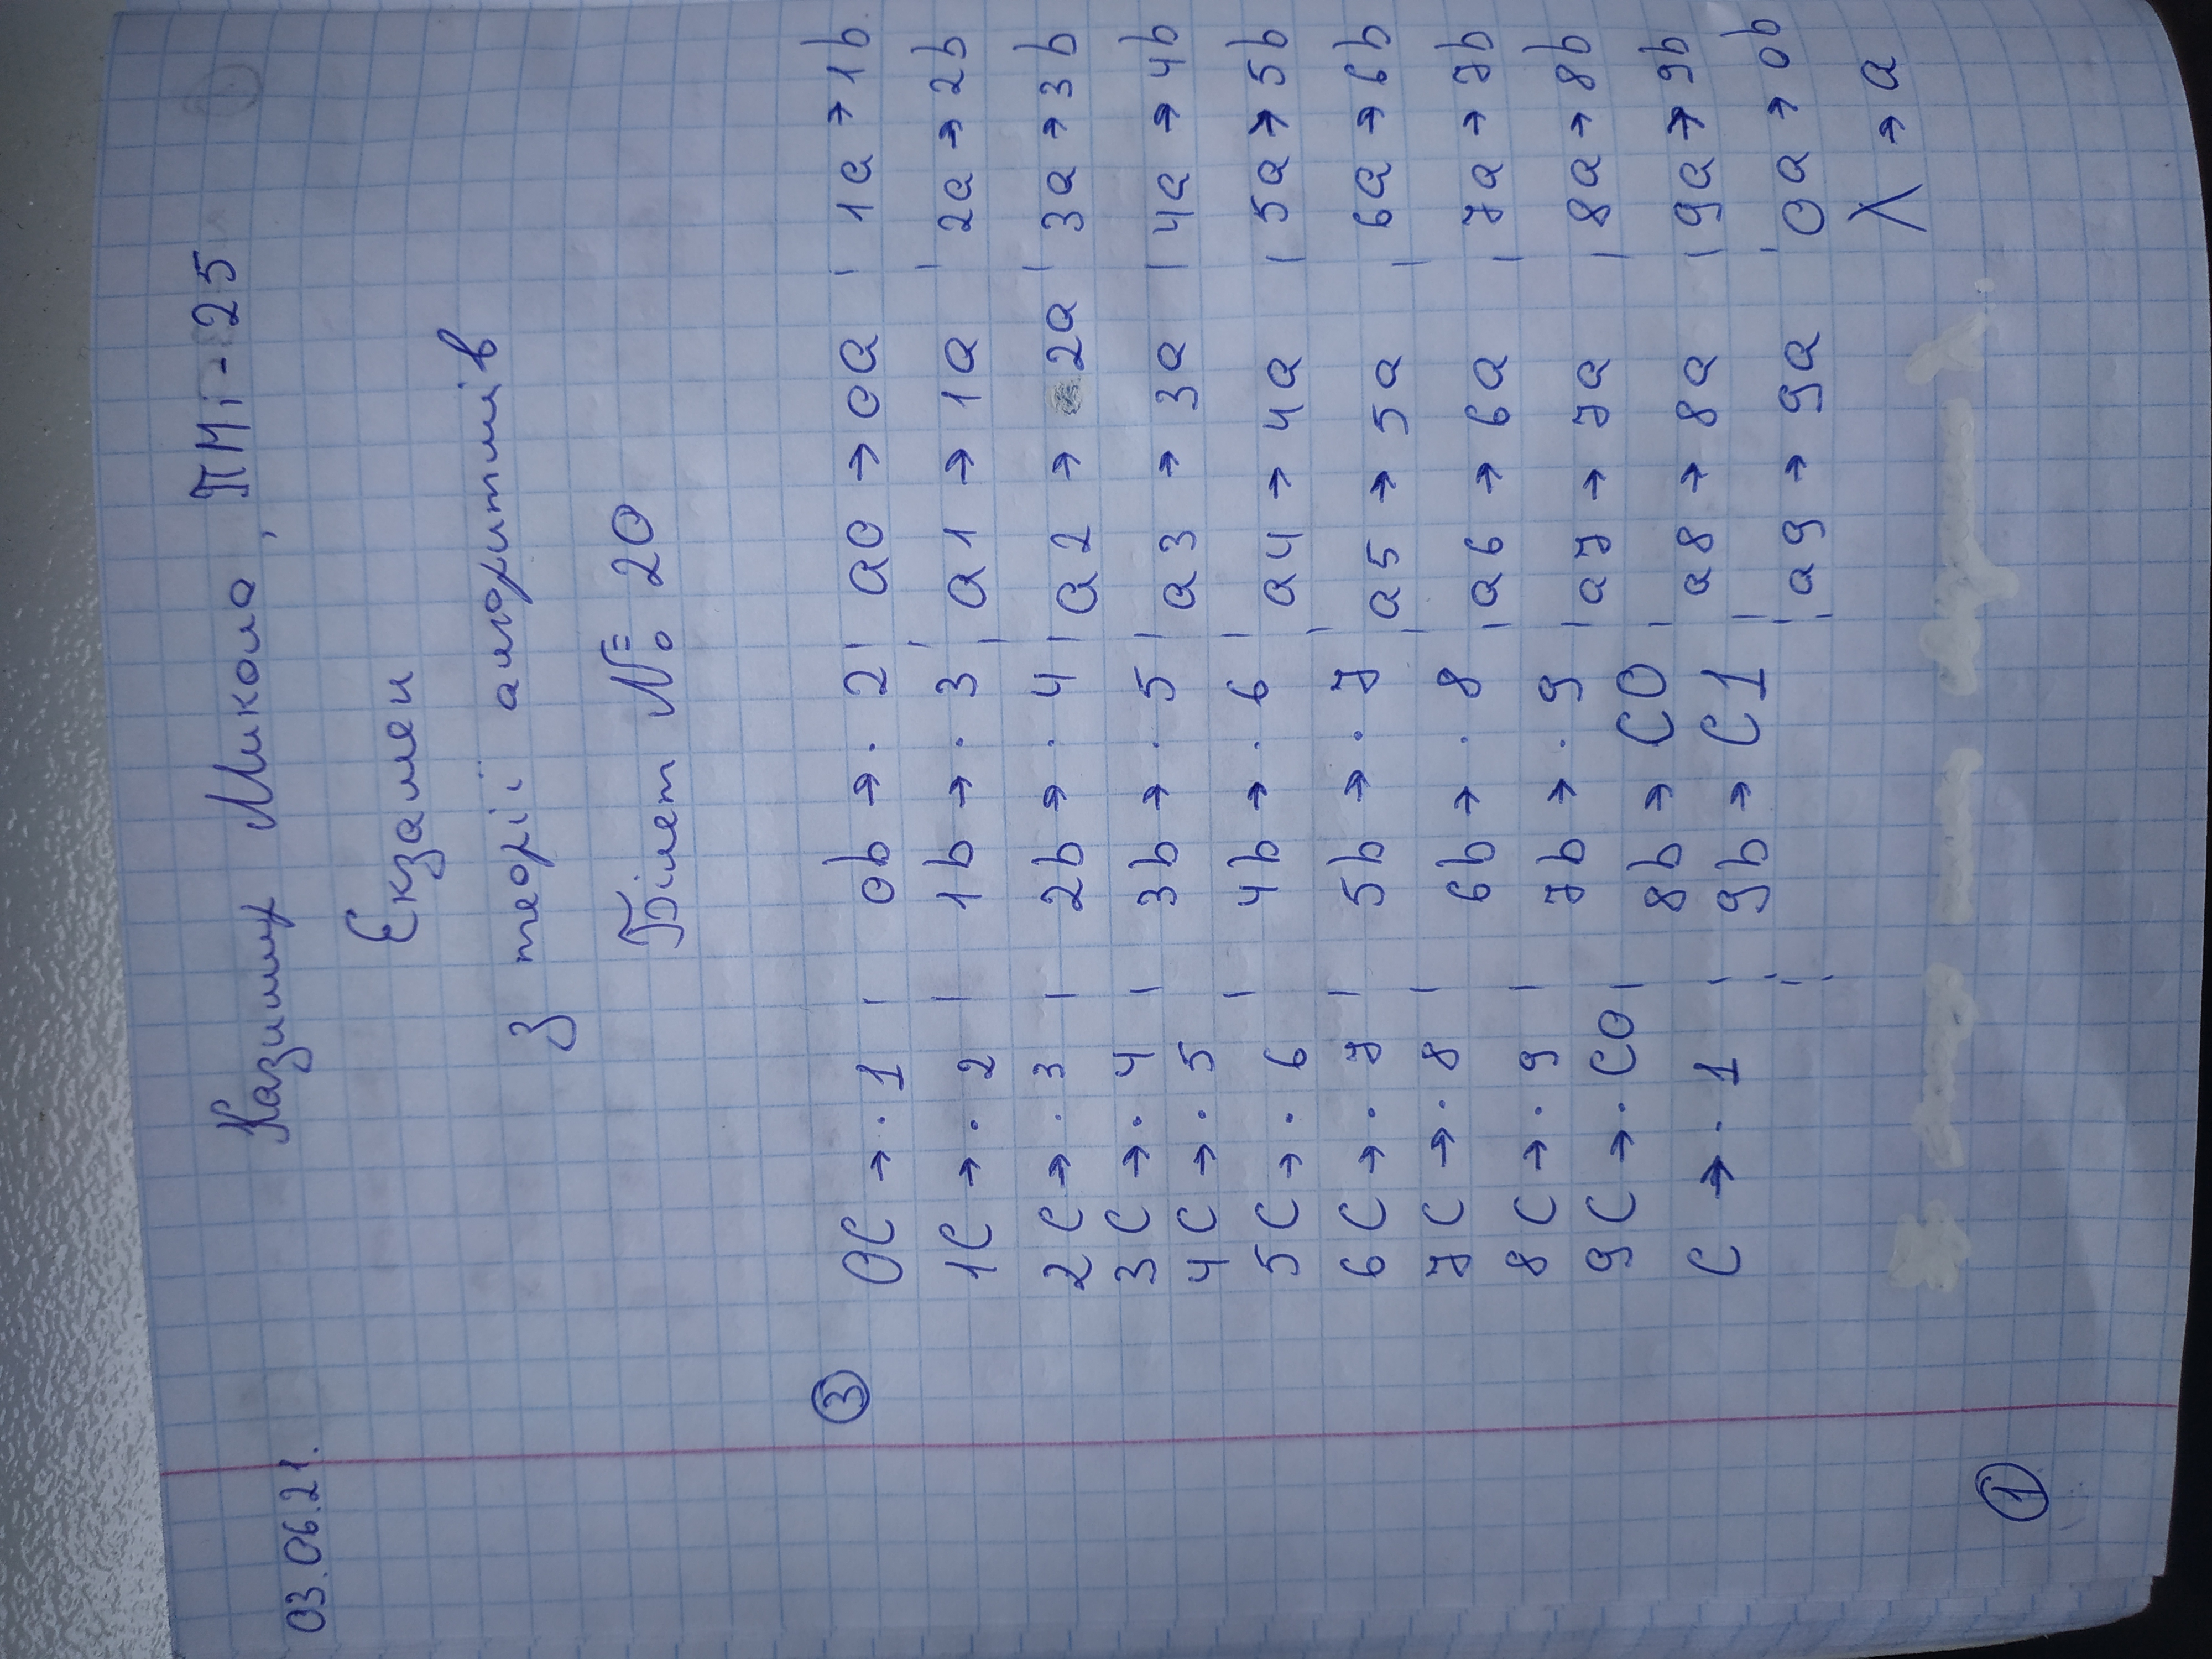 03.06.21.
Казимир Микола, ПМі-25
Екзамен
з теорії алгоритмів
Білет № 20
③
0C → · 1 | 0b → · 2 | a0 → 0a | 1a → 1b
1C → · 2 | 1b → · 3 | a1 → 1a | 2a → 2b
2C → · 3 | 2b → · 4 | a2 → 2a | 3a → 3b
3C → · 4 | 3b → · 5 | a3 → 3a | 4a → 4b
4C → · 5
5C → · 6 | 4b → · 6 | a4 → 4a | 5a → 5b
6C → · 7 | 5b → · 7 | a5 → 5a | 6a → 6b
7C → · 8 | 6b → · 8 | a6 → 6a | 7a → 7b
8C → · 9 | 7b → · 9 | a7 → 7a | 8a → 8b
9C → · C0 | 8b → C0 | a8 → 8a | 9a → 9b
C → · 1 | 9b → C1 | a9 → 9a | 0a → 0b
λ → a
①